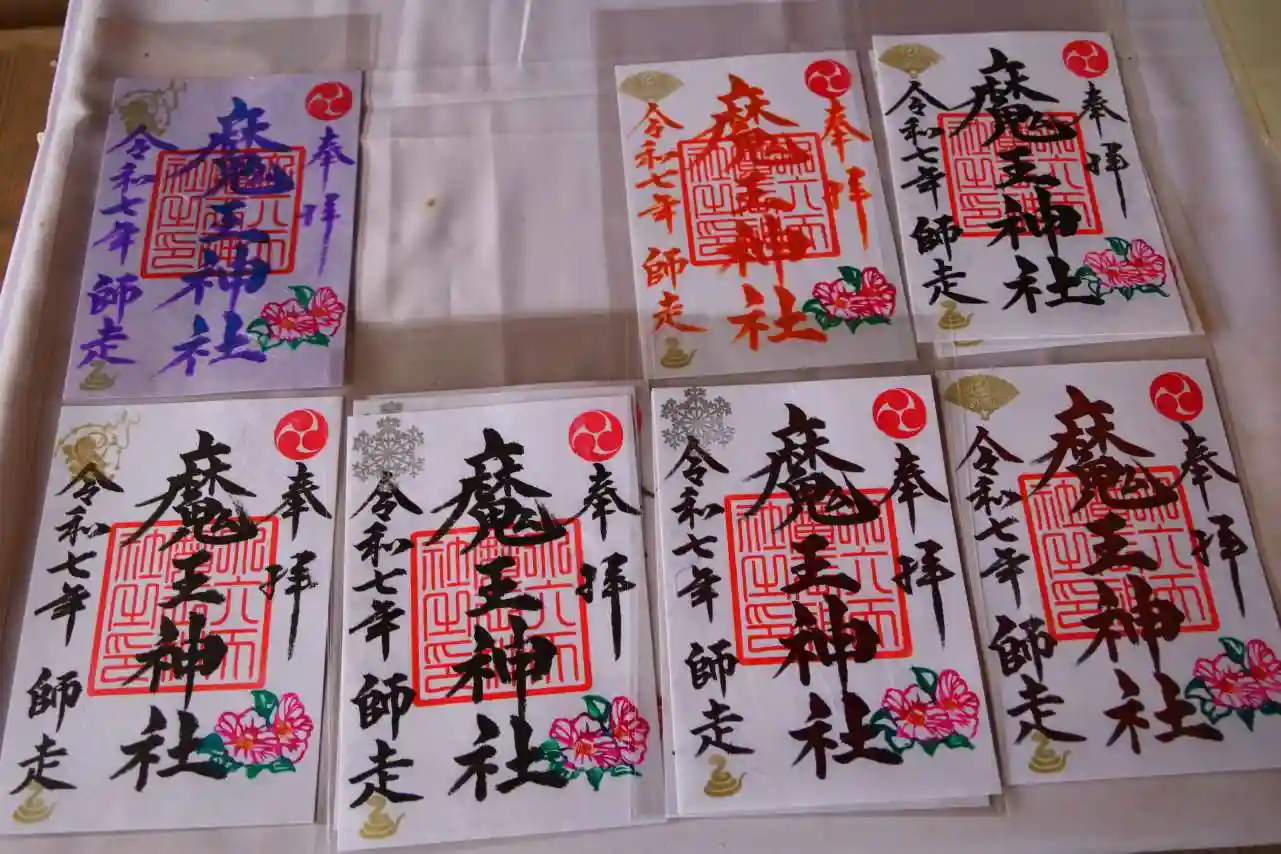 奉拝
魔王神社
令和七年
師走
奉拝
魔王神社
令和七年
師走
奉拝
魔王神社
令和七年
師走
奉拝
魔王神社
令和七年
師走
奉拝
魔王神社
令和七年
師走
奉拝
魔王神社
令和七年
師走
奉拝
魔王神社
令和七年
師走